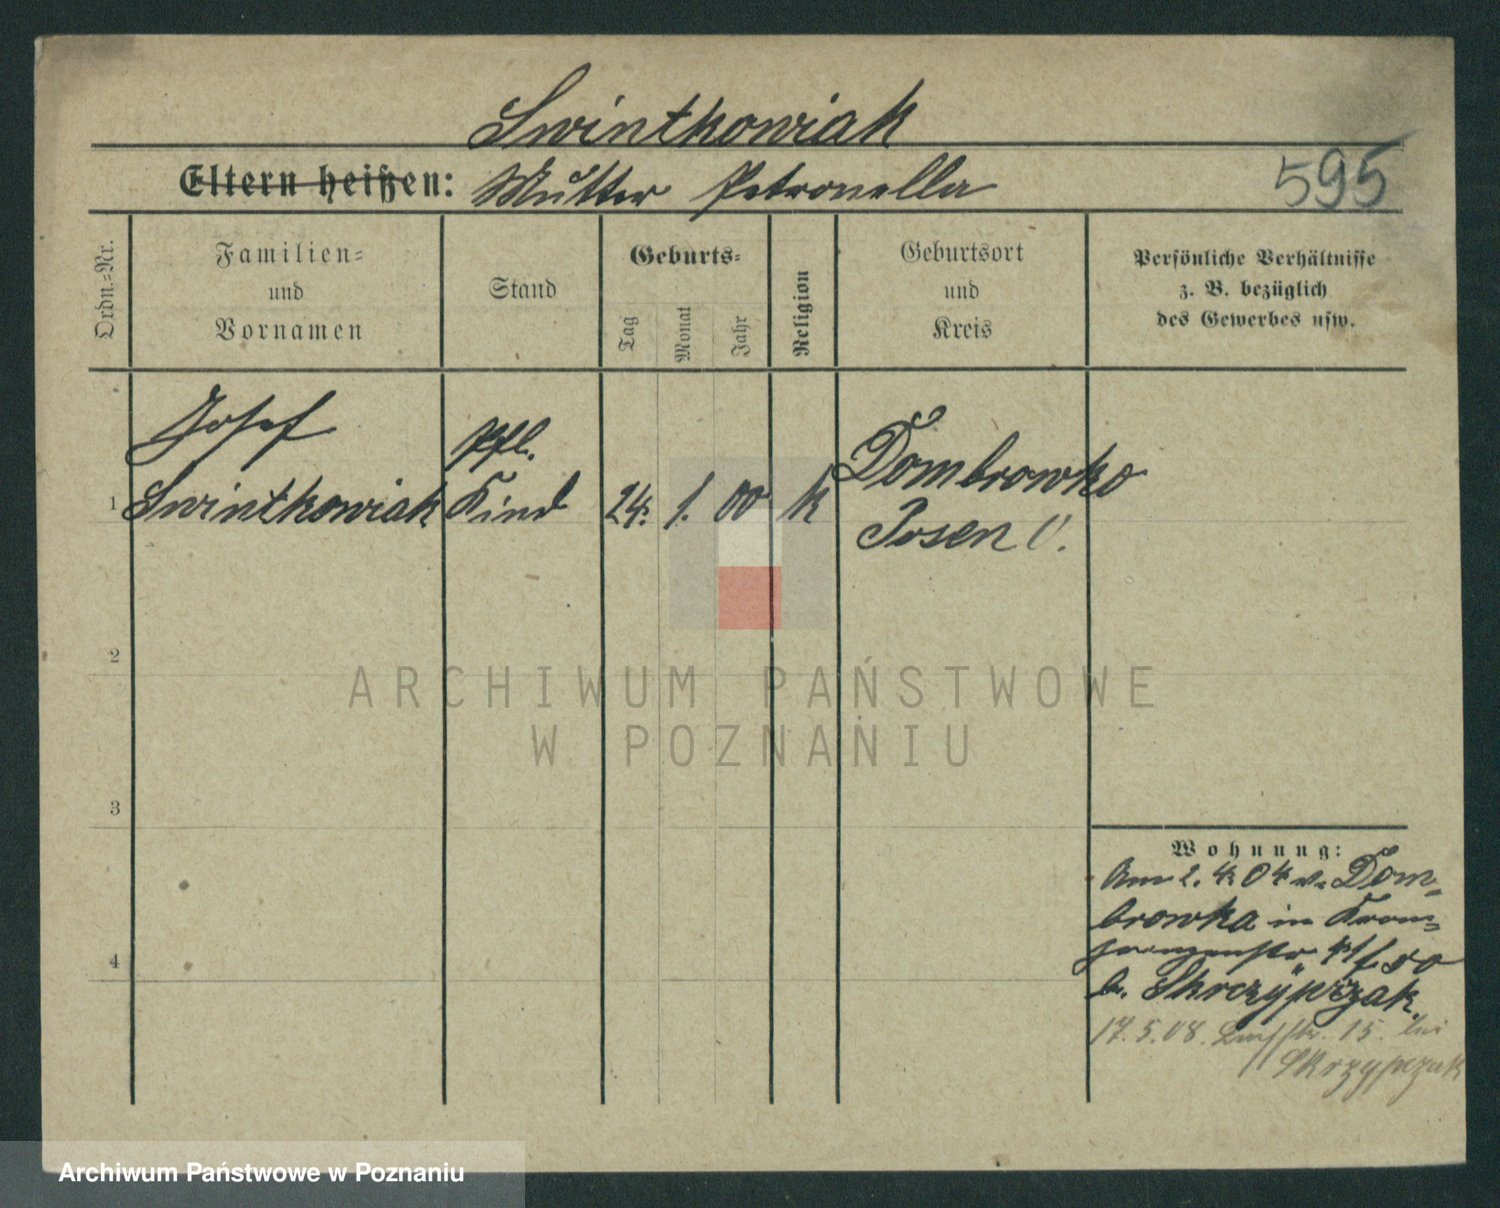 Swintkowiak
Eltern heißen: Mutter Petronella
595
Ordn.-Nr.
Familien-
und
Vornamen
Stand
Geburts-
Tag
Monat
Jahr
Religion
Geburtsort
und
Kreis
Persönliche Verhältnisse
z. B. bezüglich
des Gewerbes usw.
Josef
Swintkowiak
Pfl.
Kind
24.
1.
00
k
Dombrowko
Posen O.
1
2
3
4
Wohnung:
Am 2. 4. 04 v. Dom-
browka in Kron-
prinzenstr 50
b. Skrzypczak
17. 5. 08. 15. bei
Skrzypczak
ARCHIWUM PAŃSTWOWE
W POZNANIU
Archiwum Państwowe w Poznaniu